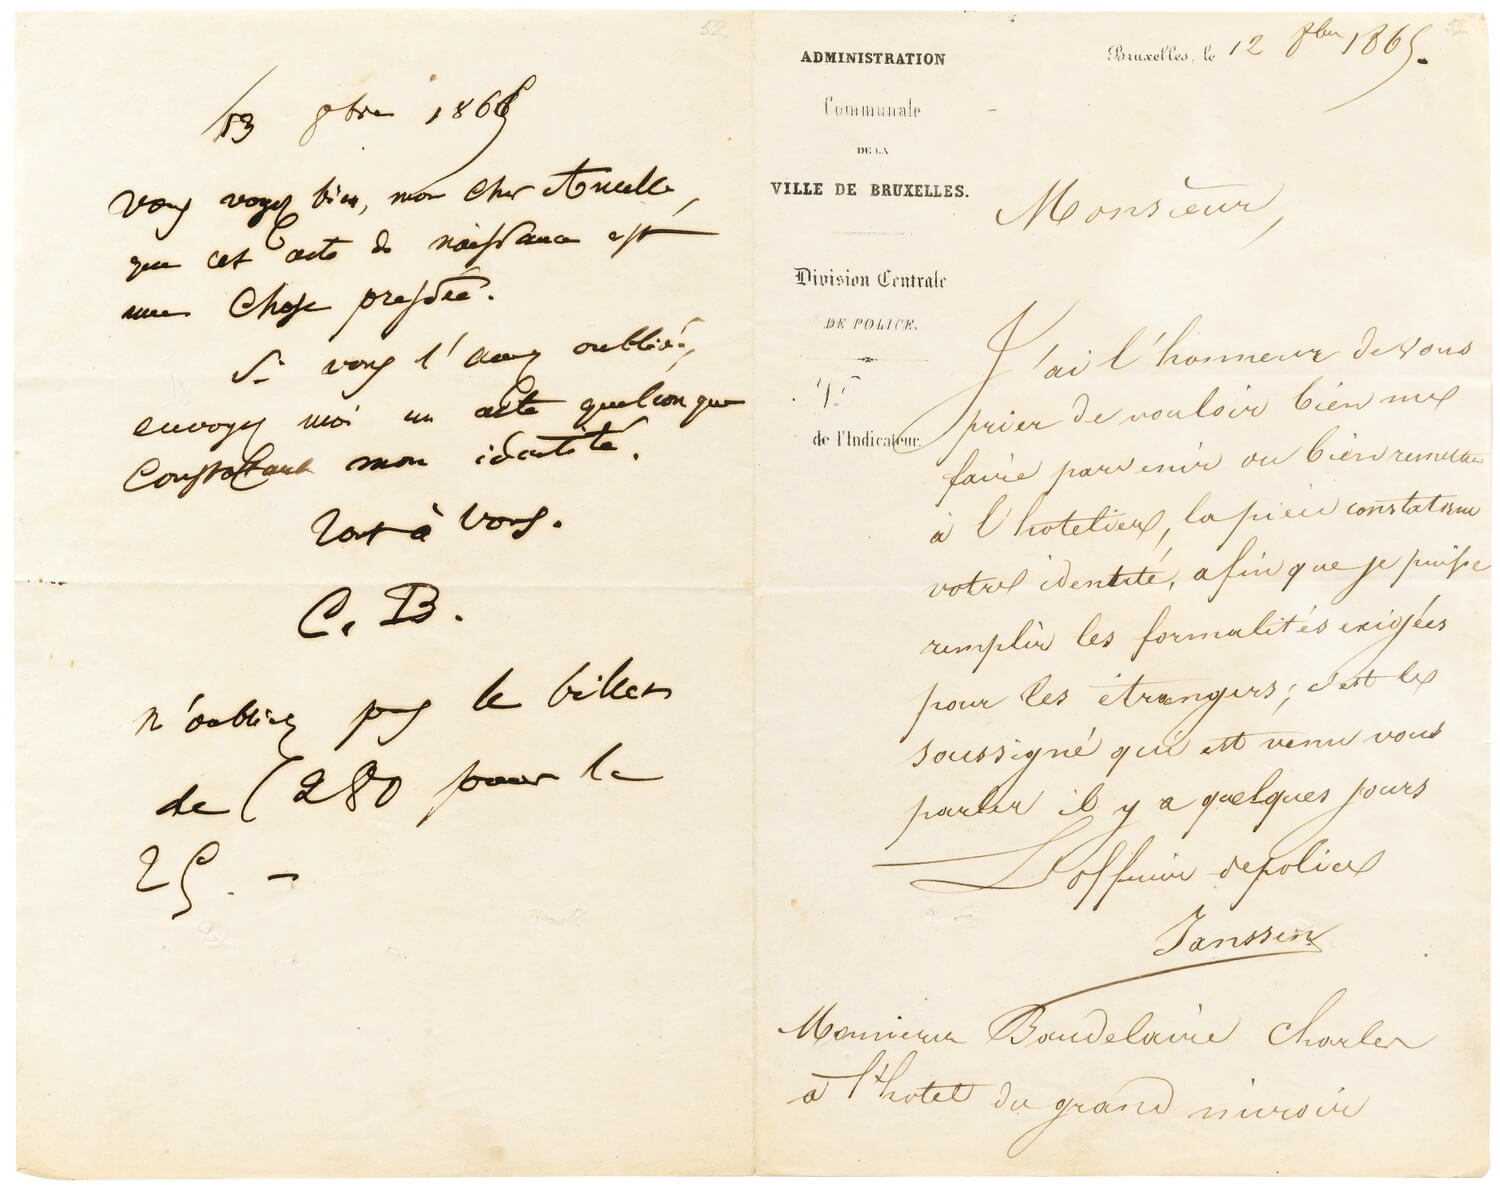 52
13 8bre 1865
Vous voyez bien, mon cher Ancelle,
que cet acte de naissance est
une chose pressée.
Si vous l'avez oublié,
envoyez moi un acte quelconque
constatant mon identité.
Tout à vous.
C. B.
N'oubliez pas le billet
de (280 pour le
25. –
52
ADMINISTRATION
Communale
DE LA
VILLE DE BRUXELLES.
Division Centrale
DE POLICE.
N°
de l'Indicateur.
Bruxelles, le 12 8bre 1865.
Monsieur,
J'ai l'honneur de vous
prier de vouloir bien me
faire parvenir ou bien remettre
à l'hotelier, la pièce constatant
votre identité, afin que je puisse
remplir les formalités exigées
pour les étrangers; c'est le
soussigné qui est venu vous
parler il y a quelques jours
L'officier de police
Janssen
Monsieur Baudelaire Charles
à l'hotel du grand miroir